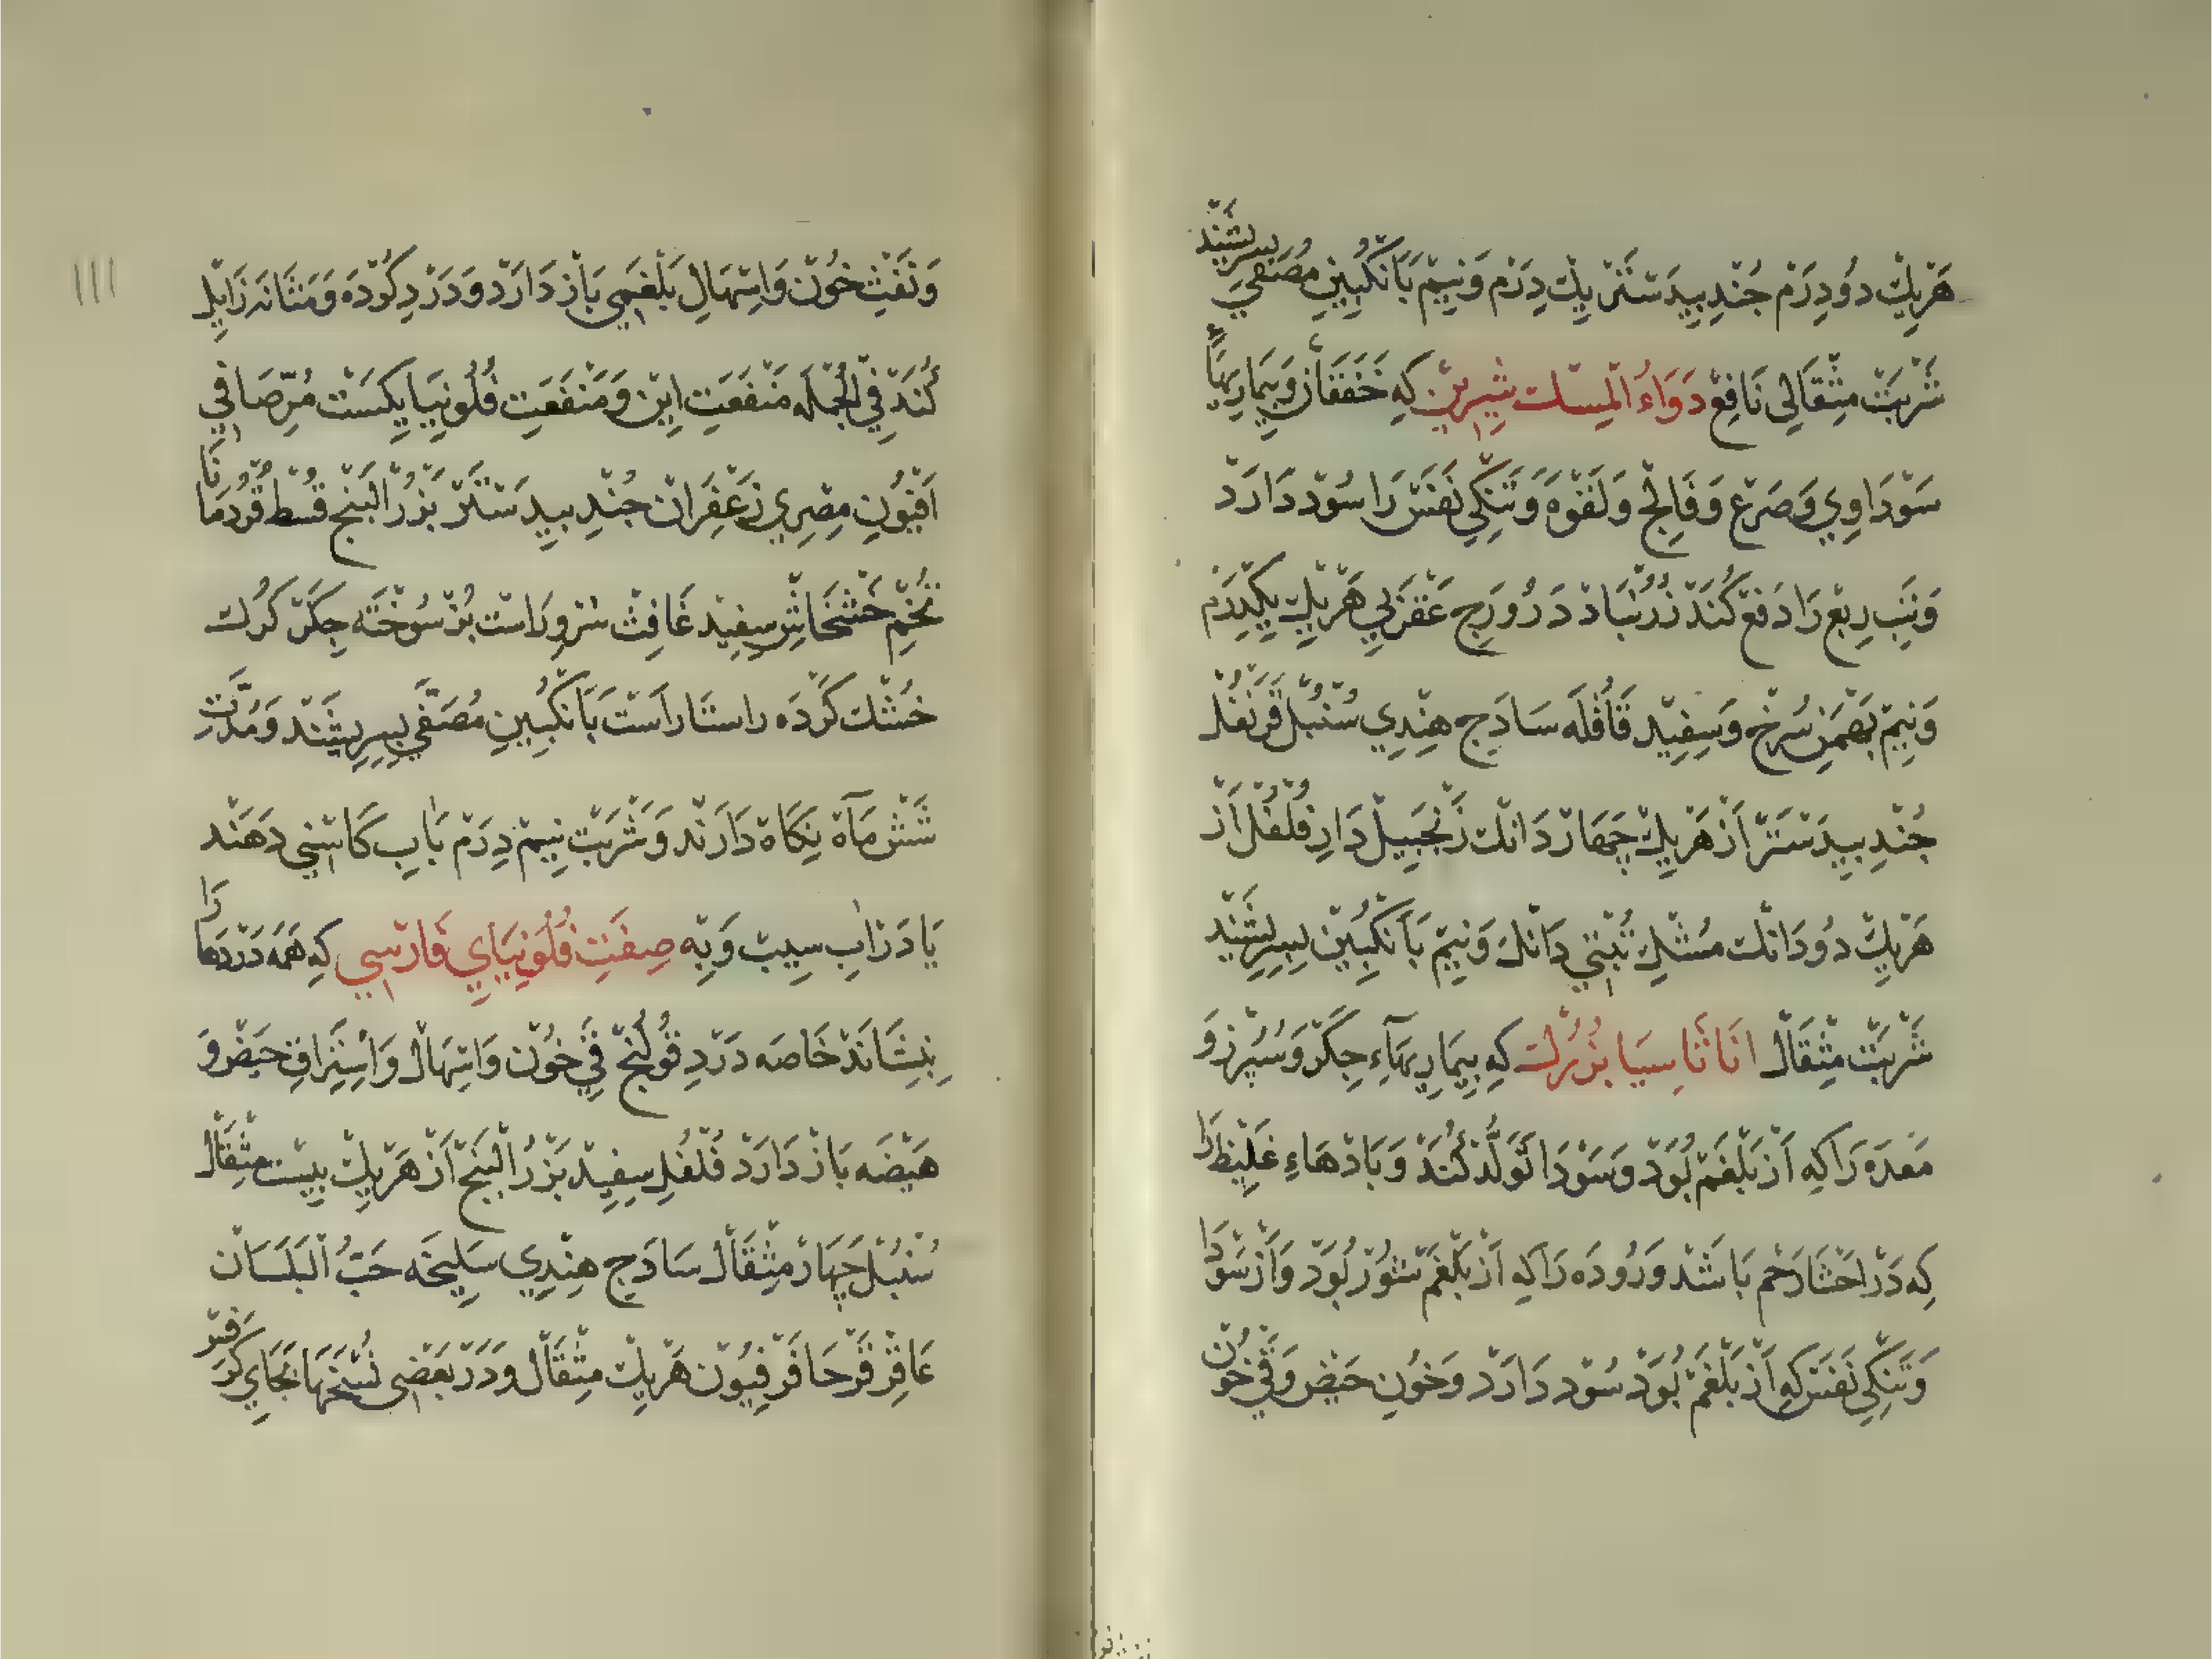 هَرْيِكْ دُودِرَمْ جُنْدِبِيدَسْتَرْ يِكْ دِرَمْ وَنِيمْ بَاَنْكُبِينِ مُصَفّي بِسِرِيشَنْد
شَرْبَتْ مِثْقَالِي نَافِعْ دَوَاءُ الْمِسْك شِيرِينْ كِه خَفَقَانْ وَبِيمَارِيهَاءِ
سَوْدَاوِي وَصَرْعْ وَفَالِجْ وَلَقْوَهْ وَتَنْكِي نَفَسْ رَا سُودْ دَارَدْ
وَتَبِ رِبْعْ رَا دَفْعْ كُنَدْ زُرُنْبَادْ دَرُورَجِ عَقْرَبِي هَرْيِكْ يِكْدِرَمْ
وَنِيمْ بَهْمَنِ سُرْخْ وَسِفِيدْ قَاقُلَه سَادَجِ هِنْدِي سُنْبُلْ قَرَنْفُلْ
جُنْدِبِيدَسْتَرْ اَزْ هَرْيِكْ چَهَارْ دَانْك زَنْجَبِيلْ دَارِفُلْفُلْ اَزْ
هَرْيِكْ دُودَانْك مُشْكِ تُبَّتِي دَانْك وَنِيمْ بَاَنْكُبِينْ بِسِرِيشَنْد
شَرْبَتْ مِثْقَالْ اَثَانَاسِيَا بُزُرْك كِه بِيمَارِيهَآءِ جِكَرْ وَسُپُرْزْ وَ
مَعِدَه رَا كِه اَزْ بَلْغَمْ بُوَدْ وَسَوْدَا تَوَلُّدْ كُنَدْ وَبَادْهَاءِ غَلِيظْ رَا
كِه دَرْ اَحْشَا رَحِمْ بَاشَدْ وَرُودَه رَا كِه اَزْ بَلْغَمْ شُورْ بُوَدْ وَاَزْ سَوْدَا
وَتَنْكِي نَفَسْ كِه اَزْ بَلْغَمْ بُوَدْ سُودْ دَارَدْ وَخُونِ حَيْضْ وَقَيْ خُونْ
وَنَفْثِ خُونْ وَاِسْهَالِ بَلْغَمِي بَازْ دَارَدْ وَدَرْدِ كُرْدَه وَمَثَانَه زَايِلْ
كُنَدْ فِي الْجُمْلَه مَنْفَعَتِ اِينْ وَمَنْفَعَتِ فُلُونِيَا يِكِيسَتْ مُرِّ صَافِي
اَفْيُونِ مِصْرِي زَعْفِرَانْ جُنْدِبِيدَسْتَرْ بَزْرُ الْبَنْجْ قُسْطْ قُرْدُمَانَا
تُخْمِ خَشْخَاشِ سِفِيدْ غَافِثْ سُرُوِ رَاسْتِ بُزْ سُوخْتَه جِكَرْ كُرْك
خُشْك كَرْدَه رَاسْتَارَاسْتْ بَاَنْكُبِينِ مُصَفَّي بِسِرِيشَنْد وَمُدَّتِ
شَشْ مَآهْ نِكَاهْ دَارَنْد وَشَرْبَتْ نِيمْ دِرَمْ بَآبِ كَاسْنِي دَهَنْد
يَا دَرْ آبِ سِيبْ وَبِه صِفَتِ فُلُونِيَايِ فَارْسِي كِه هَمَه دَرْدَهَا رَا
بِنِشَانَدْ خَاصَه دَرْدِ قُولَنْجْ قَيْ خُونْ وَاِسْهَالْ وَاِسْتِنْزَافِ حَيْضْ وَ
هَيْضَه بَازْ دَارَدْ فُلْفُلِ سِفِيدْ بَزْرُ الْبَنْجْ اَزْ هَرْيِكْ بِيسْت مِثْقَالْ
سُنْبُلْ چَهَارْ مِثْقَالْ سَادَجِ هِنْدِي سَلِيخَه حَبُّ الْبَلَسَانْ
عَاقِرْقَرْحَا فَرْفِيُونْ هَرْيِكْ مِثْقَالْ وَدَرْ بَعْضِي نُسْخَهَا بَجَايِ
١١١